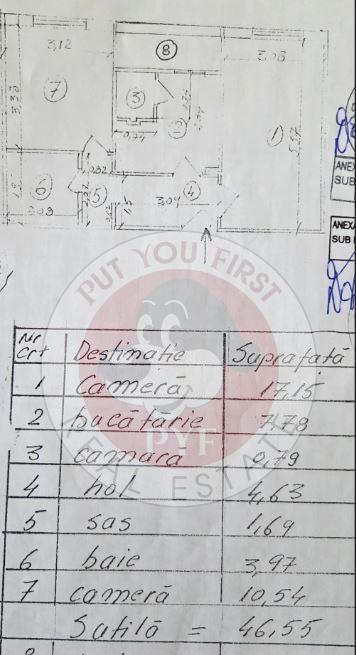 3,12
8
3,08
7
3,38
3
2
1
5,57
0,94
0,82
6
5
4
3,04
1,5
ANEXA
SUB
ANEXA
SUB
PUT YOU FIRST
PYF
REAL ESTATE
Nr Crt Destinatie Suprafată
1 Cameră 17,15
2 bucătărie 7,78
3 camară 0,79
4 hol 4,63
5 sas 1,69
6 baie 3,97
7 cameră 10,54
Sutilă = 46,55